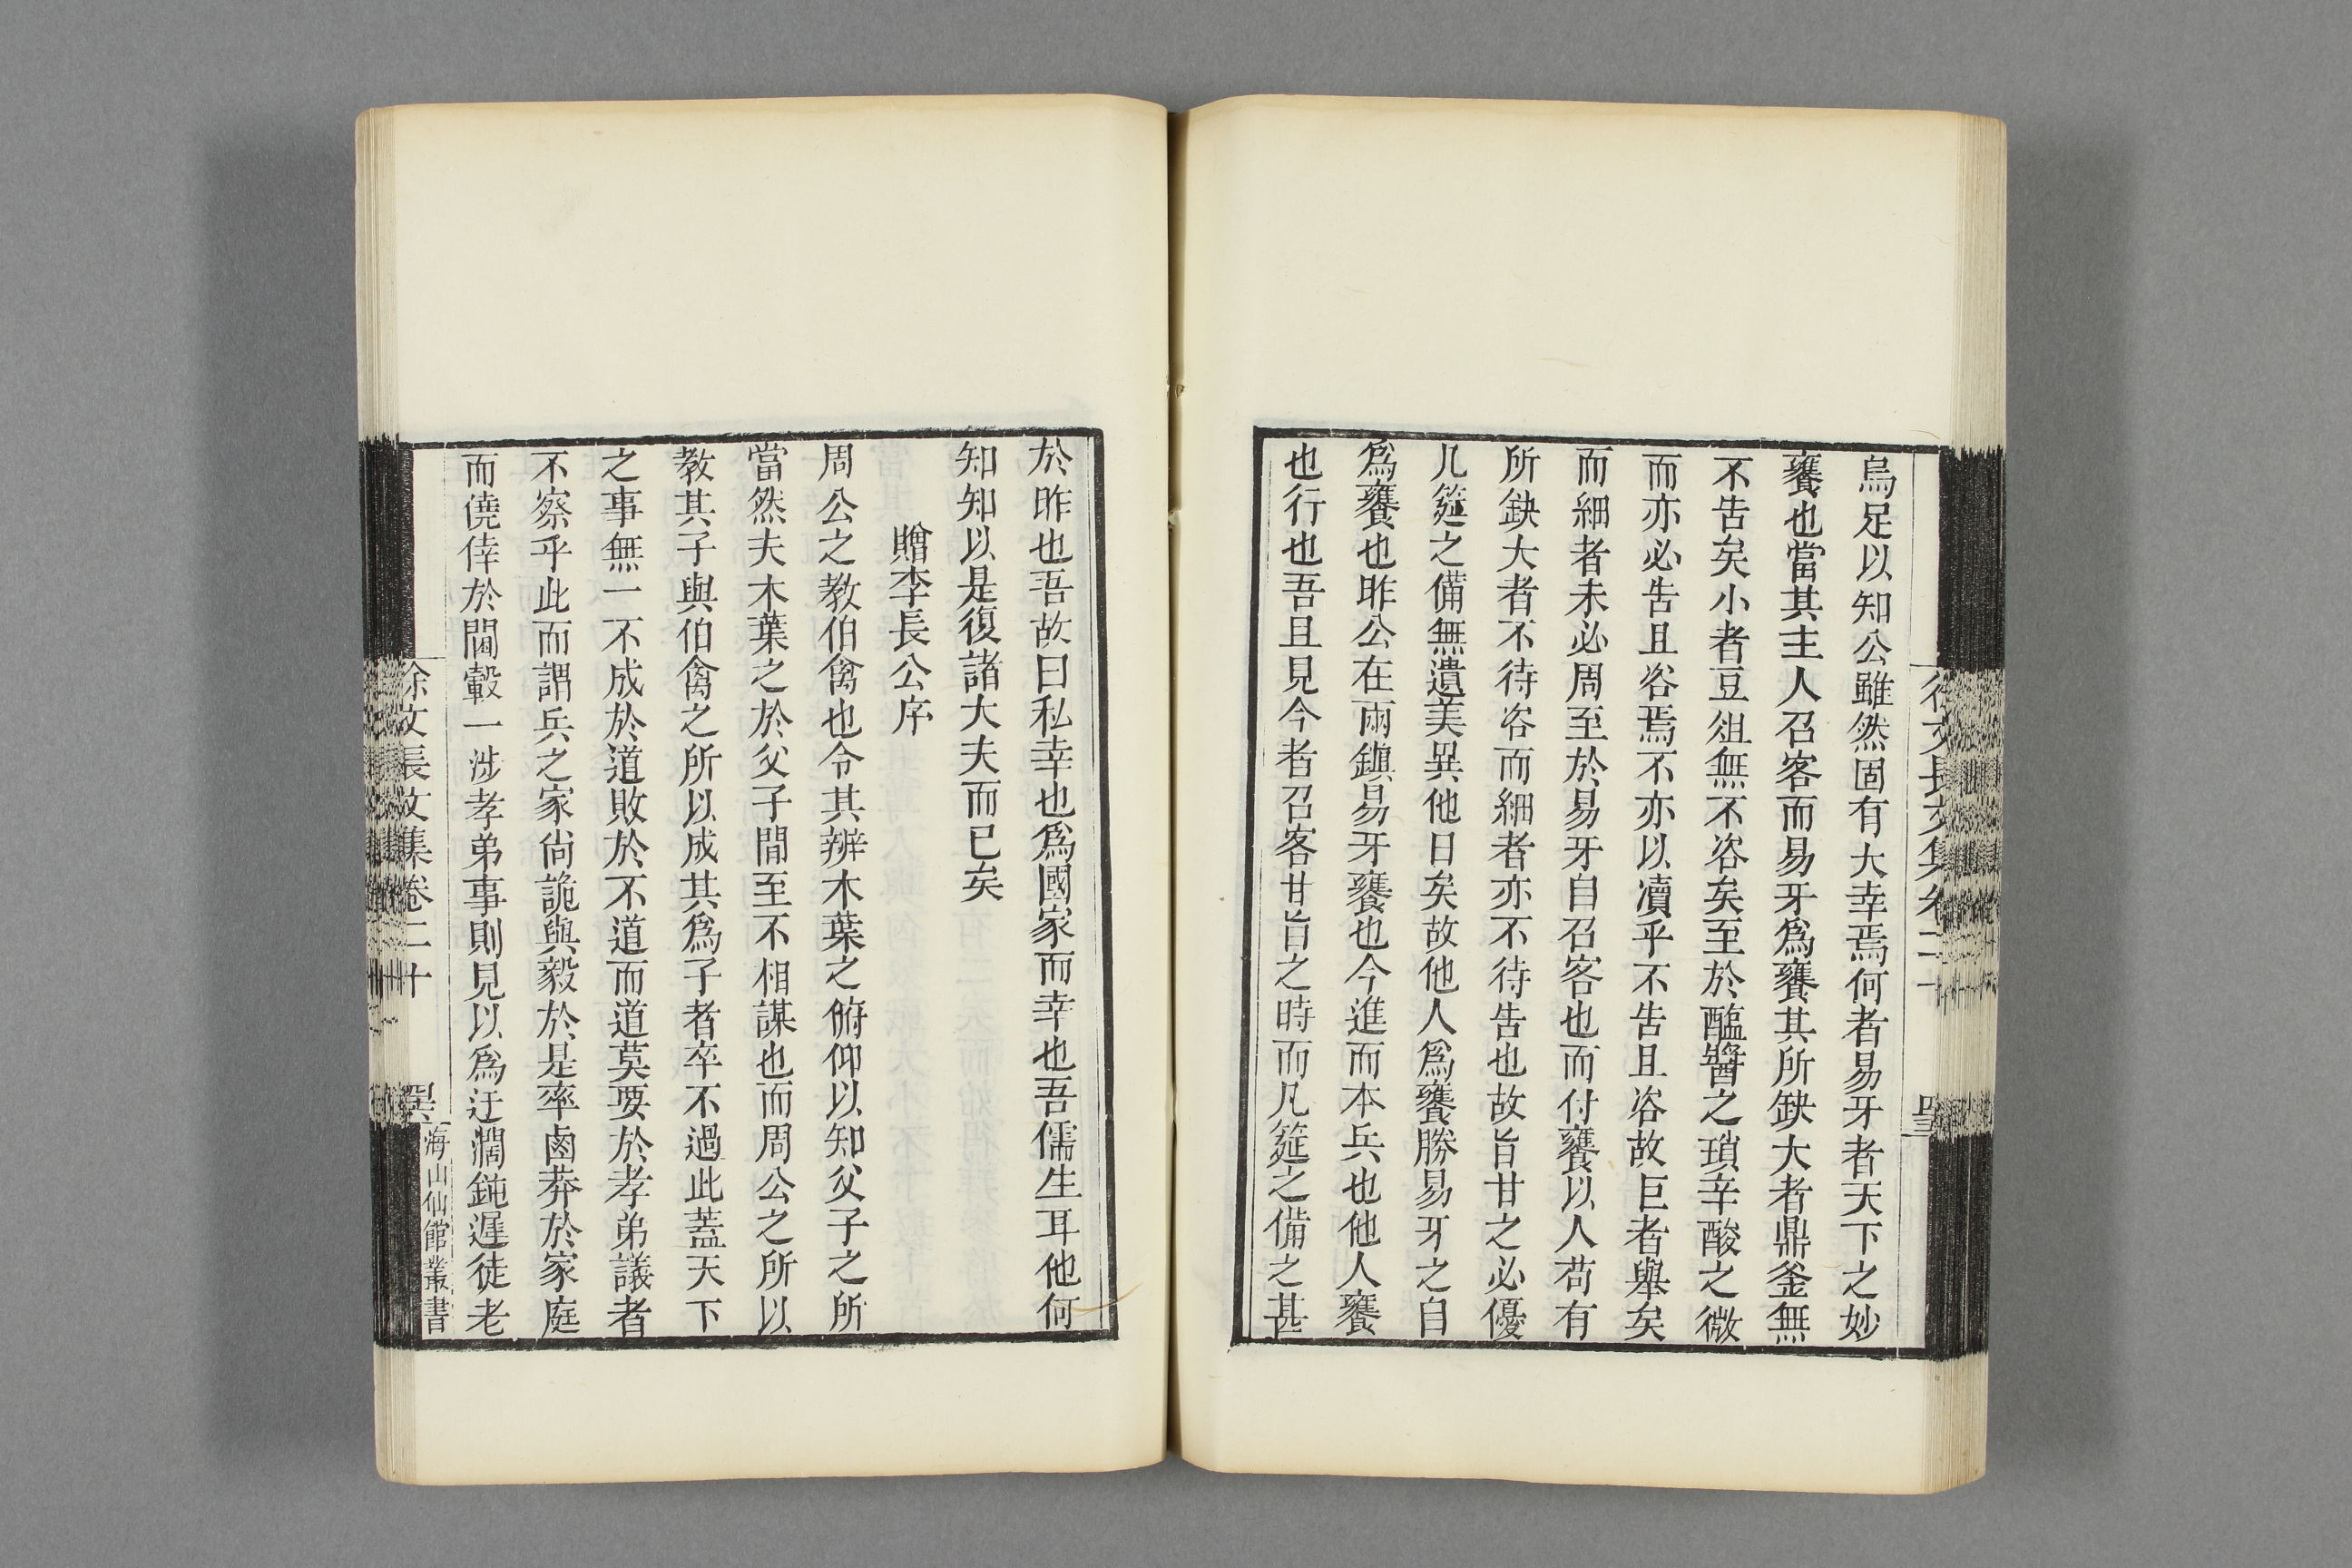 烏足以知公雖然固有大幸焉何者易牙者天下之妙
饔也當其主人召客而易牙爲饔其所缺大者鼎釜無
不告矣小者豆俎無不咨矣至於醢醬之瑣辛酸之微
而亦必告且咨焉不亦以凟乎不告且咨故巨者舉矣
而細者未必周至於易牙自召客也而付饔以人苟有
所缺大者不待咨而細者亦不待告也故旨甘之必優
凡筵之備無遺美異他日矣故他人爲饔勝易牙之自
爲饔也昨公在兩鎮易牙饔也今進而本兵也他人饔
也行也吾且見今者召客甘旨之時而凡筵之備之甚
於昨也吾故曰私幸也爲國家而幸也吾儒生耳他何
知知以是復諸大夫而已矣
贈李長公序
周公之教伯禽也令其辨木葉之俯仰以知父子之所
當然夫木葉之於父子間至不相謀也而周公之所以
教其子與伯禽之所以成其爲子者卒不過此蓋天下
之事無一不成於道敗於不道而道莫要於孝弟議者
不察乎此而謂兵之家尙詭與毅於是率鹵莽於家庭
而僥倖於閫轂一涉孝弟事則見以爲迂濶鈍遲徒老
徐文長文集卷二十
海山仙館叢書